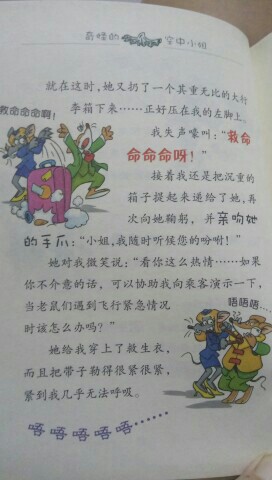 奇怪的空中小姐
就在这时,她又扔了一个其重无比的大行
李箱下来……正好压在我的左脚上。
救命命命啊!
我失声嚎叫:“救命
命命命呀!”
接着我还是把沉重的
箱子提起来递给了她,再
次向她鞠躬,并亲吻她
的手爪:“小姐,我随时听候您的吩咐!”
她对我微笑说:“看你这么热情……如果
你不介意的话,可以协助我向乘客演示一下,
当老鼠们遇到飞行紧急情况
时该怎么办吗?”
唔唔唔……
她给我穿上了救生衣,
而且把带子勒得很紧很紧,
紧到我几乎无法呼吸。
唔唔唔唔唔……